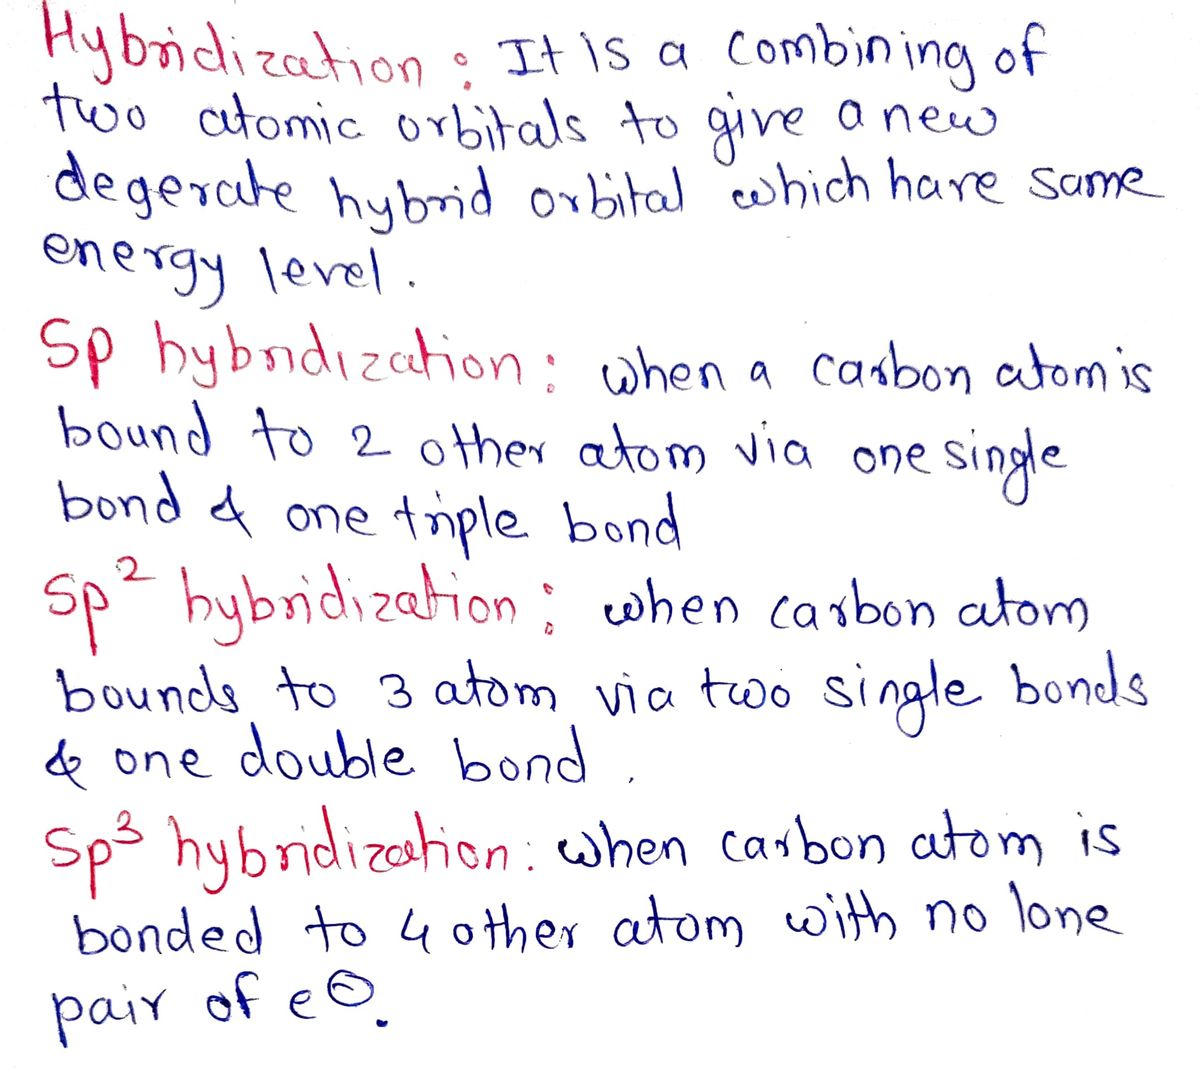 Hybridization : It is a combining of
two atomic orbitals to give a new
degerate hybrid orbital which have same
energy level.
Sp hybridization : when a carbon atom is
bound to 2 other atom via one single
bond & one triple bond
Sp² hybridization : when carbon atom
bounds to 3 atom via two single bonds
& one double bond .
Sp³ hybridization : when carbon atom is
bonded to 4 other atom with no lone
pair of e⊖.